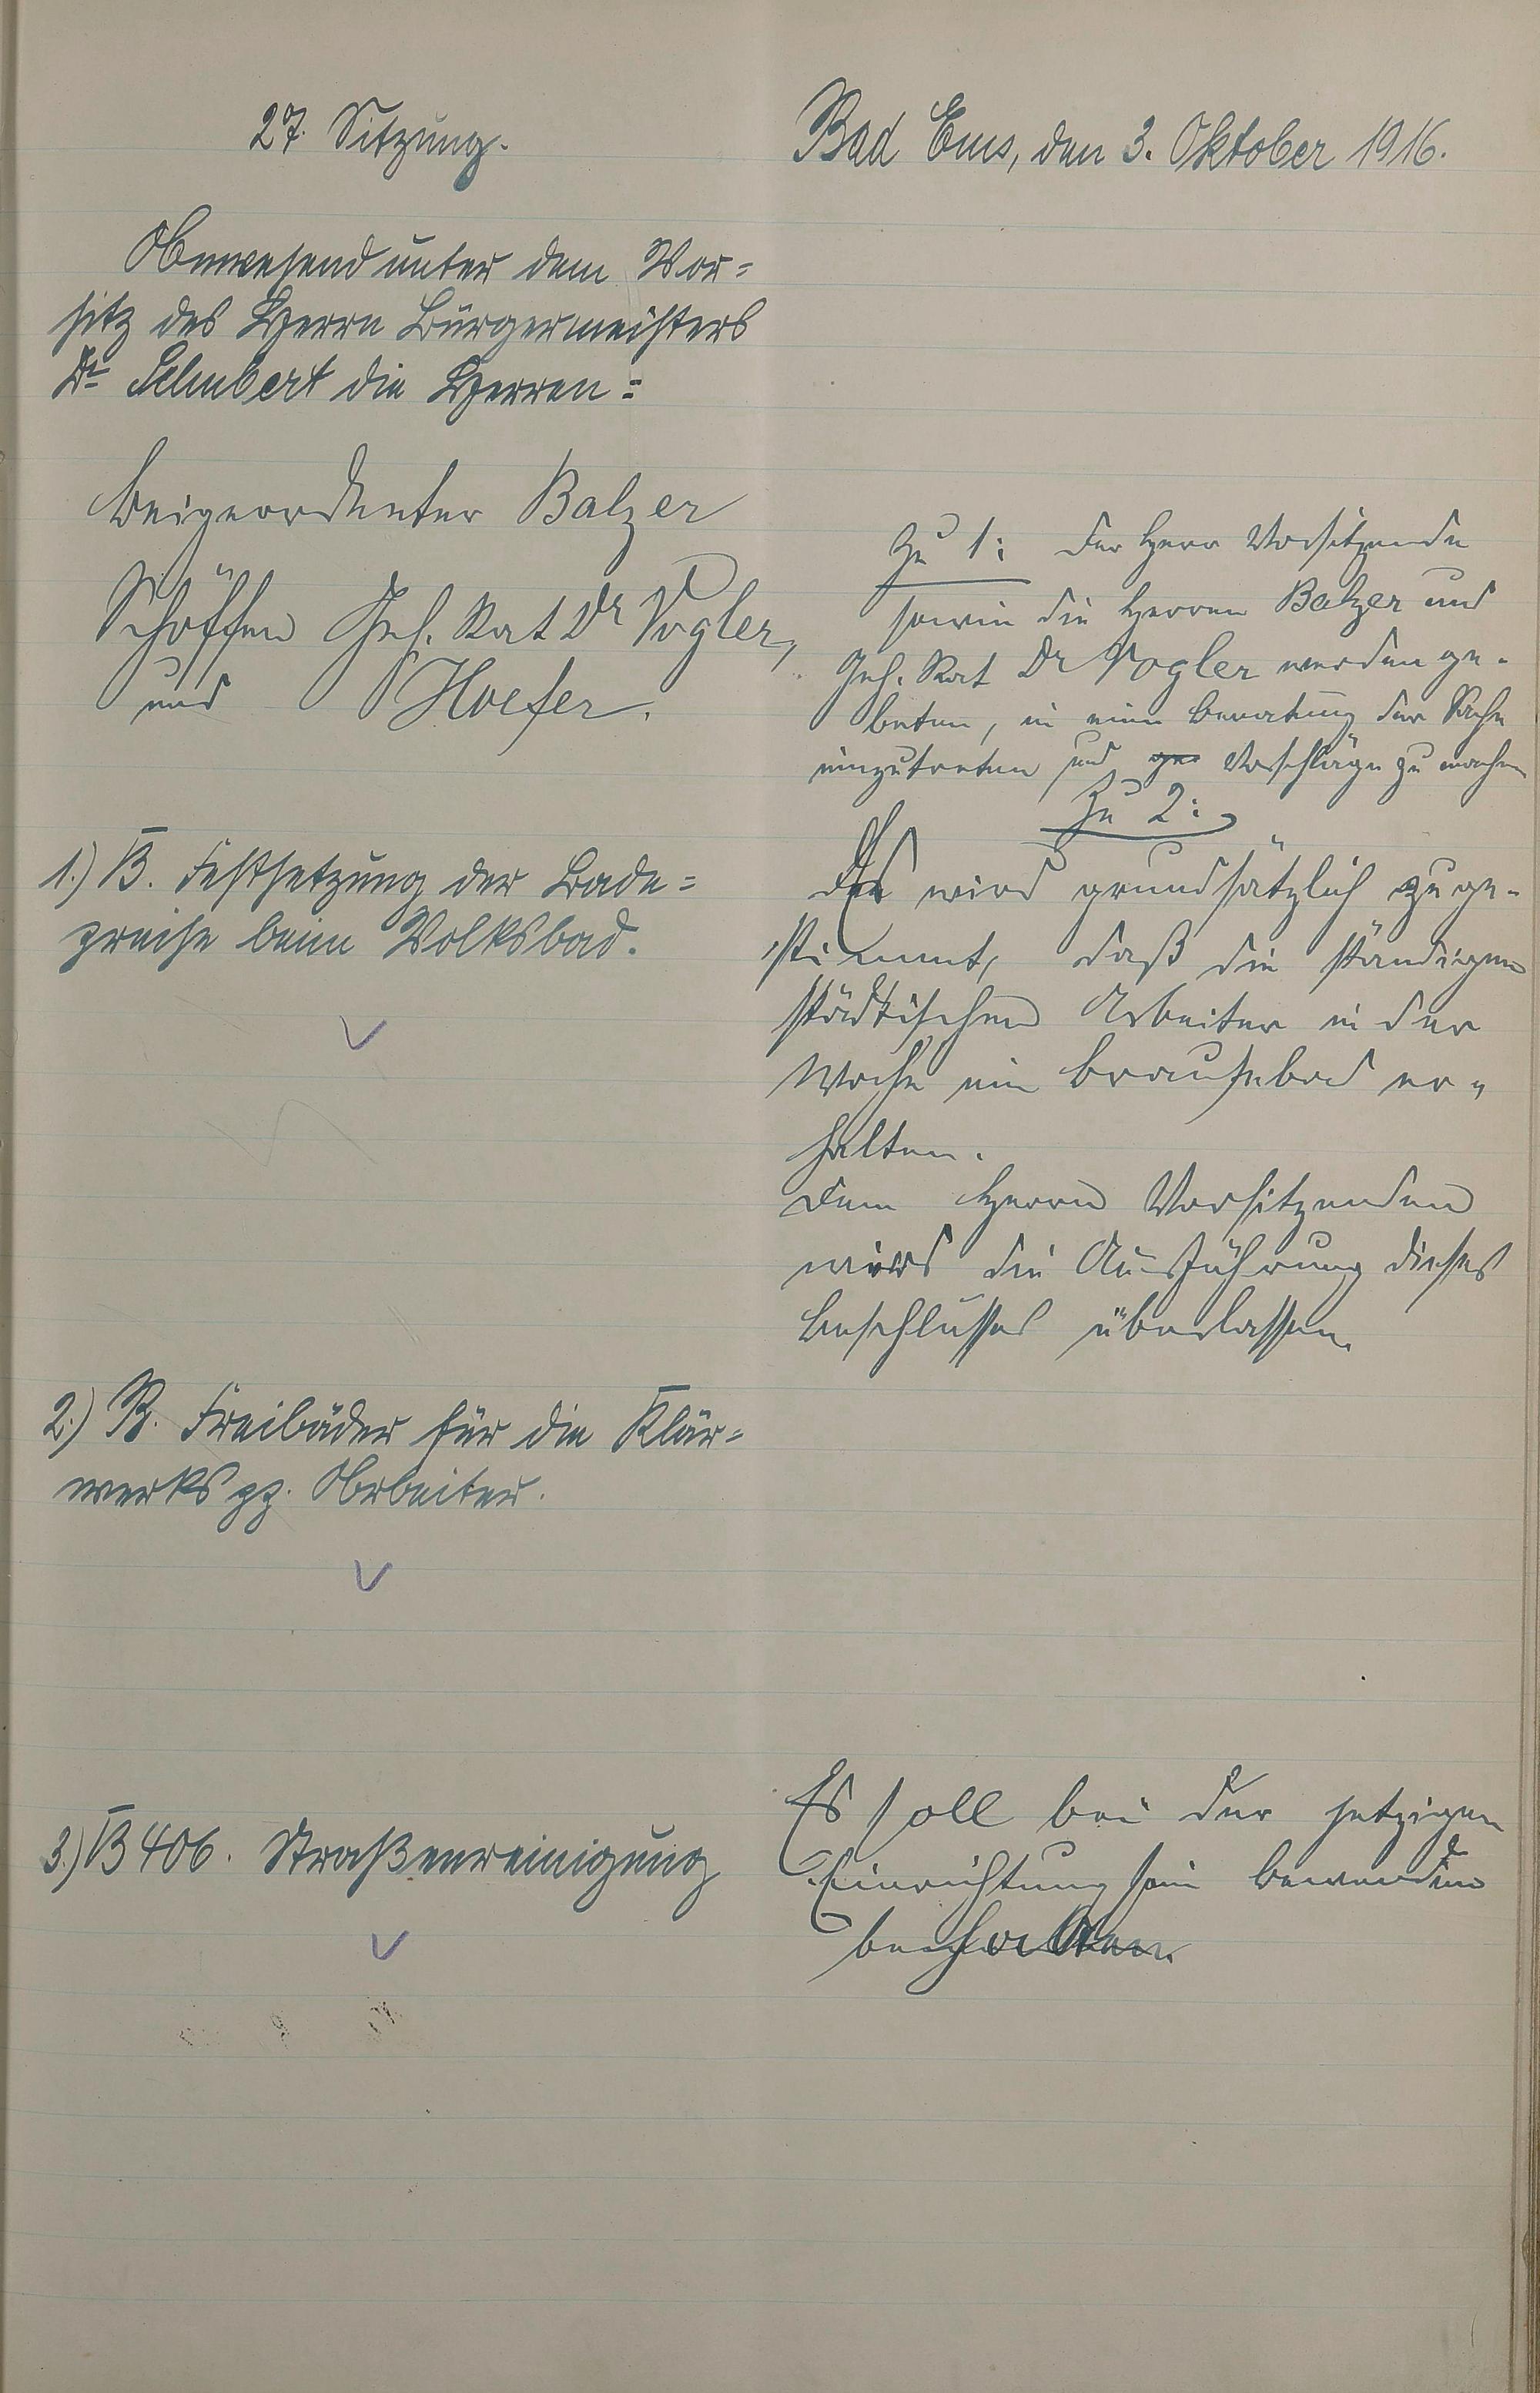 27. Sitzung.
Bad Ems, den 3. Oktober 1916.
Anwesend unter dem Vor=
sitz des Herrn Bürgermeisters
Dr. Schubert die Herren:
Beigeordneter Balzer
Schöffen Geh. Rat Dr Vogler,
und Hoefer.
1.) B. Festsetzung der Bade=
preise beim Volksbad.
2.) B. Freibäder für die Klär=
werks pp. Arbeiter.
3.) B 406. Straßenreinigung
Zu 1: Der Herr Vorsitzende
sowie die Herren Balzer und
Geh. Rat Dr Vogler werden ge-
beten, in eine Beratung der Sache
einzutreten und Vorschläge zu machen
Zu 2:
Es wird grundsätzlich zuge-
stimmt, daß die ständigen
städtischen Arbeiter in der
Woche ein Brausebad er-
halten.
Dem Herrn Vorsitzenden
wird die Ausführung dieses
Beschlusses überlassen.
Es soll bei der jetzigen
Einrichtung sein Bewenden
behalten.